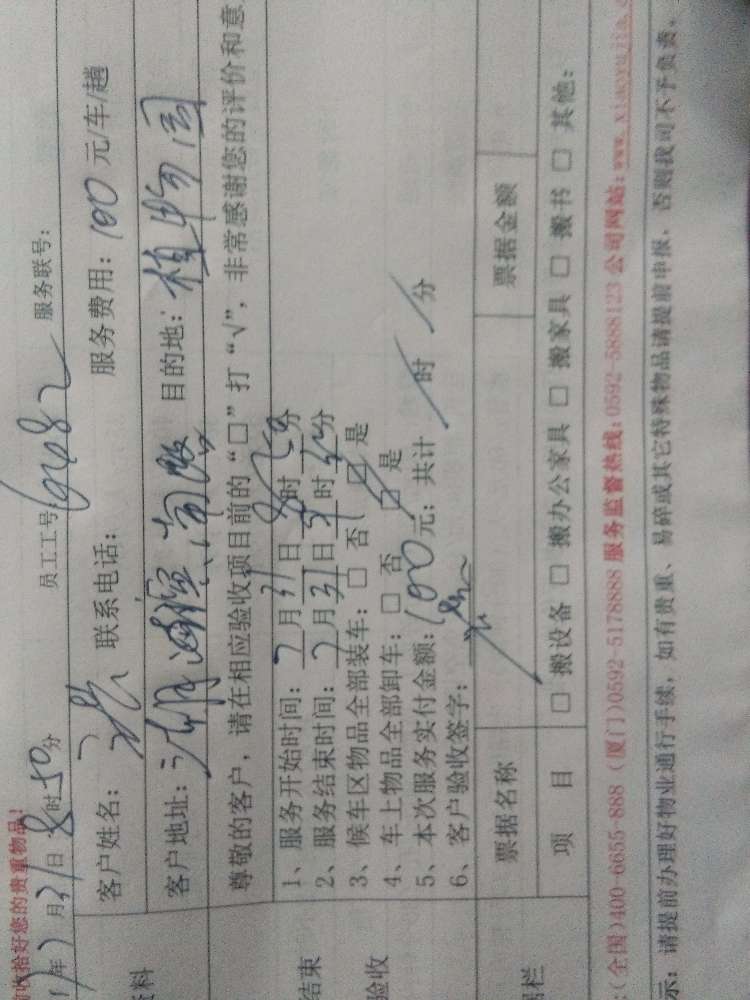 收拾好您的贵重物品!
年7月31日8时50分 员工工号 服务联号:
客户姓名: 联系电话: 服务费用: 100 元/车/趟
客户地址: 目的地: 植物园
尊敬的客户, 请在相应验收项目前的“□”打“√”, 非常感谢您的评价和意
1、服务开始时间: 7月31日8时50分
2、服务结束时间: 7月31日 时 分
3、候车区物品全部装车: □ 否 □ 是
4、车上物品全部卸车: □ 否 □ 是
5、本次服务实付金额: 100元; 共计 / 时 / 分
6、客户验收签字:
结束
验收
票据名称 票据金额
项 目 □ 搬设备 □ 搬办公家具 □ 搬家具 □ 搬书 □ 其他:
(全国)400-6655-888 (厦门)0592-5178888 服务监督热线:0592-5888123 公司网站:www.xiaoyujia.c
示: 请提前办理好物业通行手续, 如有贵重、易碎或其它特殊物品请提前申报, 否则我司不予负责。